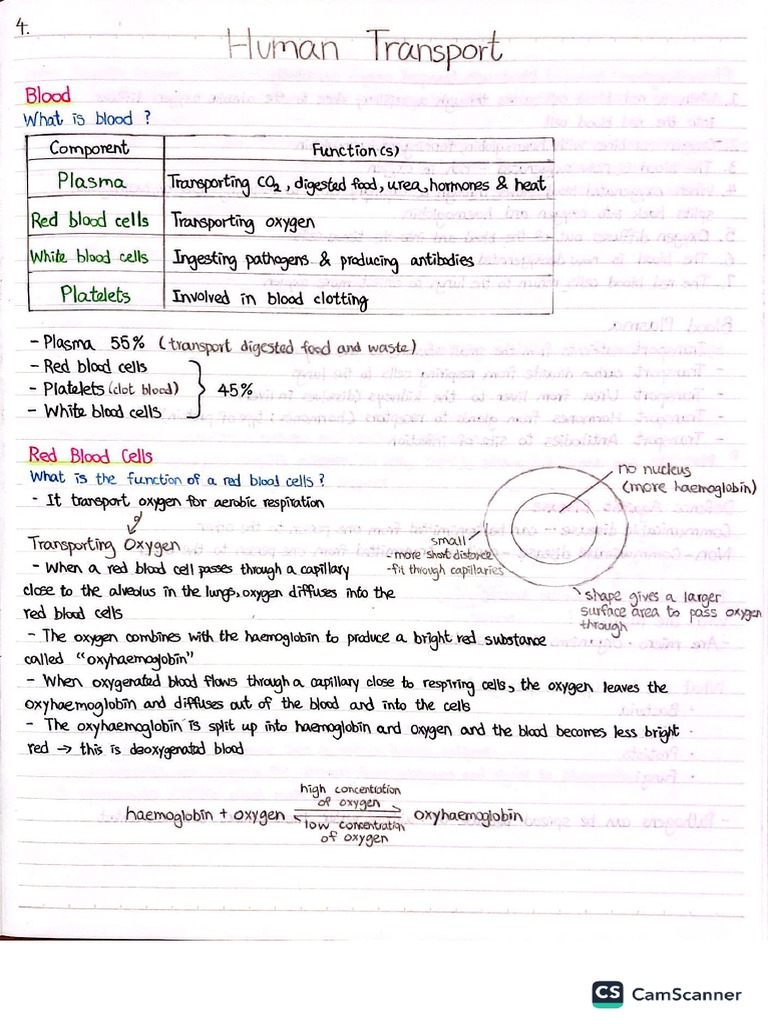 4.
Human Transport
Blood
What is blood ?
Component Function(s)
Plasma Transporting CO2, digested food, urea, hormones & heat
Red blood cells Transporting oxygen
White blood cells Ingesting pathogens & producing antibodies
Platelets Involved in blood clotting
- Plasma 55% (transport digested food and waste)
- Red blood cells
- Platelets (clot blood) } 45%
- White blood cells
Red Blood Cells
What is the function of a red blood cells ?
- It transport oxygen for aerobic respiration
no nucleus
(more haemoglobin)
small
- more short distance
- fit through capillaries
shape gives a larger
surface area to pass oxygen
through
Transporting Oxygen
- When a red blood cell passes through a capillary
close to the alveolus in the lungs, oxygen diffuses into the
red blood cells
- The oxygen combines with the haemoglobin to produce a bright red substance
called "oxyhaemoglobin"
- When oxygenated blood flows through a capillary close to respiring cells, the oxygen leaves the
oxyhaemoglobin and diffuses out of the blood and into the cells
- The oxyhaemoglobin is split up into haemoglobin and oxygen and the blood becomes less bright
red → this is deoxygenated blood
high concentration
of oxygen
haemoglobin + oxygen ⇌ oxyhaemoglobin
low concentration
of oxygen
CS CamScanner